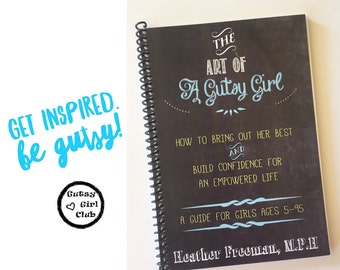 GET INSPIRED.
be gutsy!
Gutsy
Girl
Club
THE
ART OF
A Gutsy Girl
HOW TO BRING OUT HER BEST
AND
BUILD CONFIDENCE FOR
AN EMPOWERED LIFE
A GUIDE FOR GIRLS AGES 5-95
Heather Freeman, M.P.H